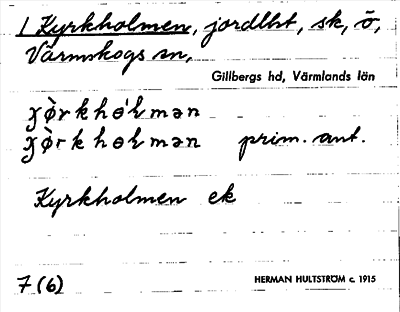 1 Kyrkholmen, jordlht, sk, ö,
Värmskogs sn,
Gillbergs hd, Värmlands län
prim. ant.
Kyrkholmen ek
7 (6)
HERMAN HULTSTRÖM c. 1915